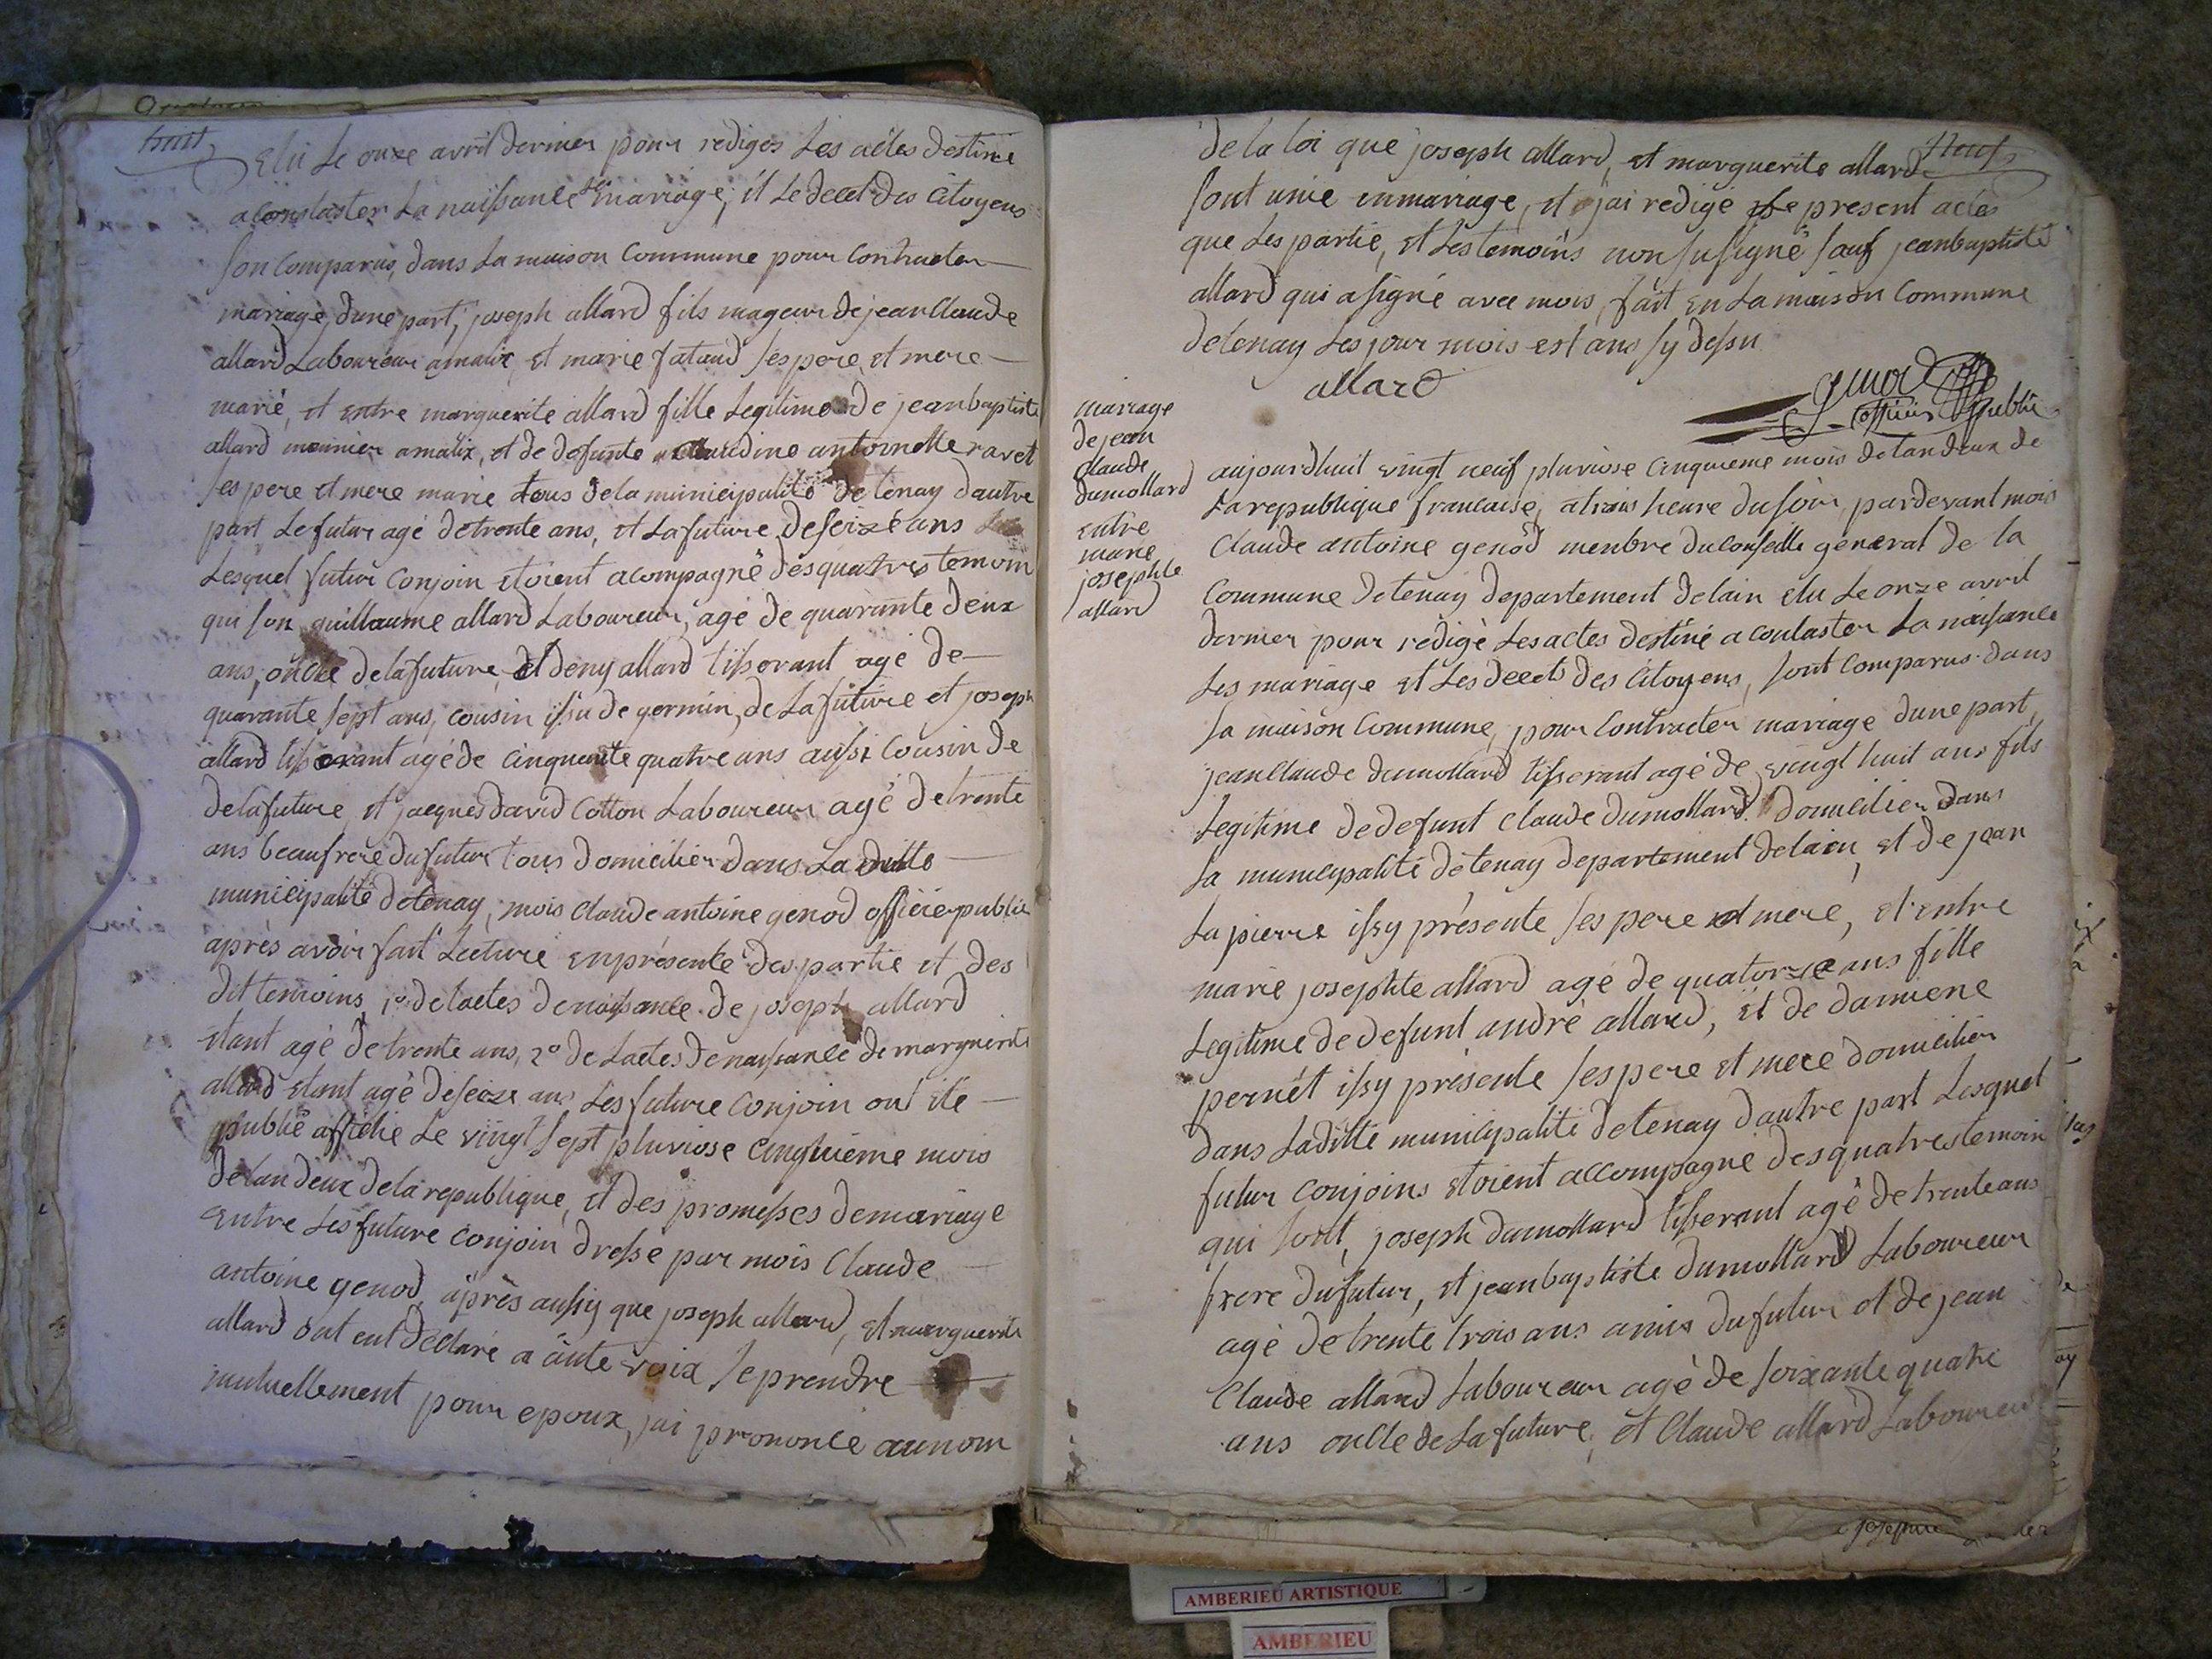 huit
Elu le onze avril dernier pour rediges les actes destine
a constaster la naissance les mariage, et le decet des Citoyens
son Comparus, dans la maison Commune pour Contracter
mariage, dune part, joseph allard fils mageur de jean Claude
allard Laboureur a malix, et marie fataud ses pere et mere
marié, et entre marguerite allard fille legitime de jean baptiste
allard meunier a malix, et de defunte Claudine antoinette ravet
ses pere et mere marie tous de la municipalité de tenay dautre
part Le futur agé de trente ans, et La future de seizé ans
Lesquel futur Conjoin etoient acompagné des quatres temoin
qui son guillaume allard Laboureur, agé de quarante deux
ans, oncle de la future, et deny allard tisserant agé de
quarante sept ans, cousin issu de germin, de La future et joseph
allard tisserant agé de Cinquante quatre ans aussi Cousin de
de la future et jacques david Cotton Laboureur agé de trente
ans beaufrere du futur tous domicilier dans La ditte
municipalité de tenay, mois Claude antoine genod officier public
après avoir fait Lecture en présente des partie et des
dit temoins, 1º. de lactes de naissance de joseph allard
etant agé de trente ans, 2º de Lactes de naissance de marguerite
allard etant agé de seize ans Les future Conjoin ont été
publié affiché Le vingt sept pluviose Cinquiéme mois
de lan deux de la republique, et des promesses de mariage
Entre Les future Conjoin dresse par mois Claude
antoine genod, aprês aussy que joseph allard, et marguerite
allard ont eut déclaré a ãute voix se prendre
mutuellement pour epoux, jai prononcé au nom
Neuf
de la loi que joseph allard, et marguerite allard
sont unie en mariage, et jai redigé le present actes
que Les partie, et Les temoins non susigné sauf jean baptiste
allard qui a signé avec mois, fait En La maison Commune
de tenay Les jour mois est ans sy dessu
allard
genod
officier public
mariage
de jean
claude
dumollard
entre
marie
josephte
allard
aujourdhuit vingt neuf pluviose Cinquieme mois de lan deux de
La republique francaise, a trois heure du soir, pardevant mois
Claude antoine genod menbre du Conseille géneral de la
Commune de tenay departement de lain elu Le onze avril
dernier pour rédigé Les actes destiné a contaster La naissance
Les mariage et Les decets des Citoyens, sont Comparus dans
La maison Commune, pour Contracter mariage dune part,
jean Claude dumollard tisserant agé de vingt huit ans fils
Legitime de defunt Claude dumollard domicilier dans
La municipalité de tenay departement de lain, et de jean
Lapierre issy présente ses pere et mere, et entre
marie josephte allard agé de quatorze ans fille
Legitime de defunt andré allard, et de damiene
pernét issy présente ses pere et mere domicilier
dans La ditte municipalité de tenay dautre part Lesquel
futur Conjoins etoient accompagné des quatres temoin
qui sont, joseph dumollard tisserant agé de trente ans
frere du futur, et jean baptiste dumollard Laboureur
agé de trente trois ans amis du futur et de jean
Claude allard Laboureur agé de soixante quatre
ans oncle de La future, et Claude allard Laboureur
AMBERIEU ARTISTIQUE
AMBERIEU